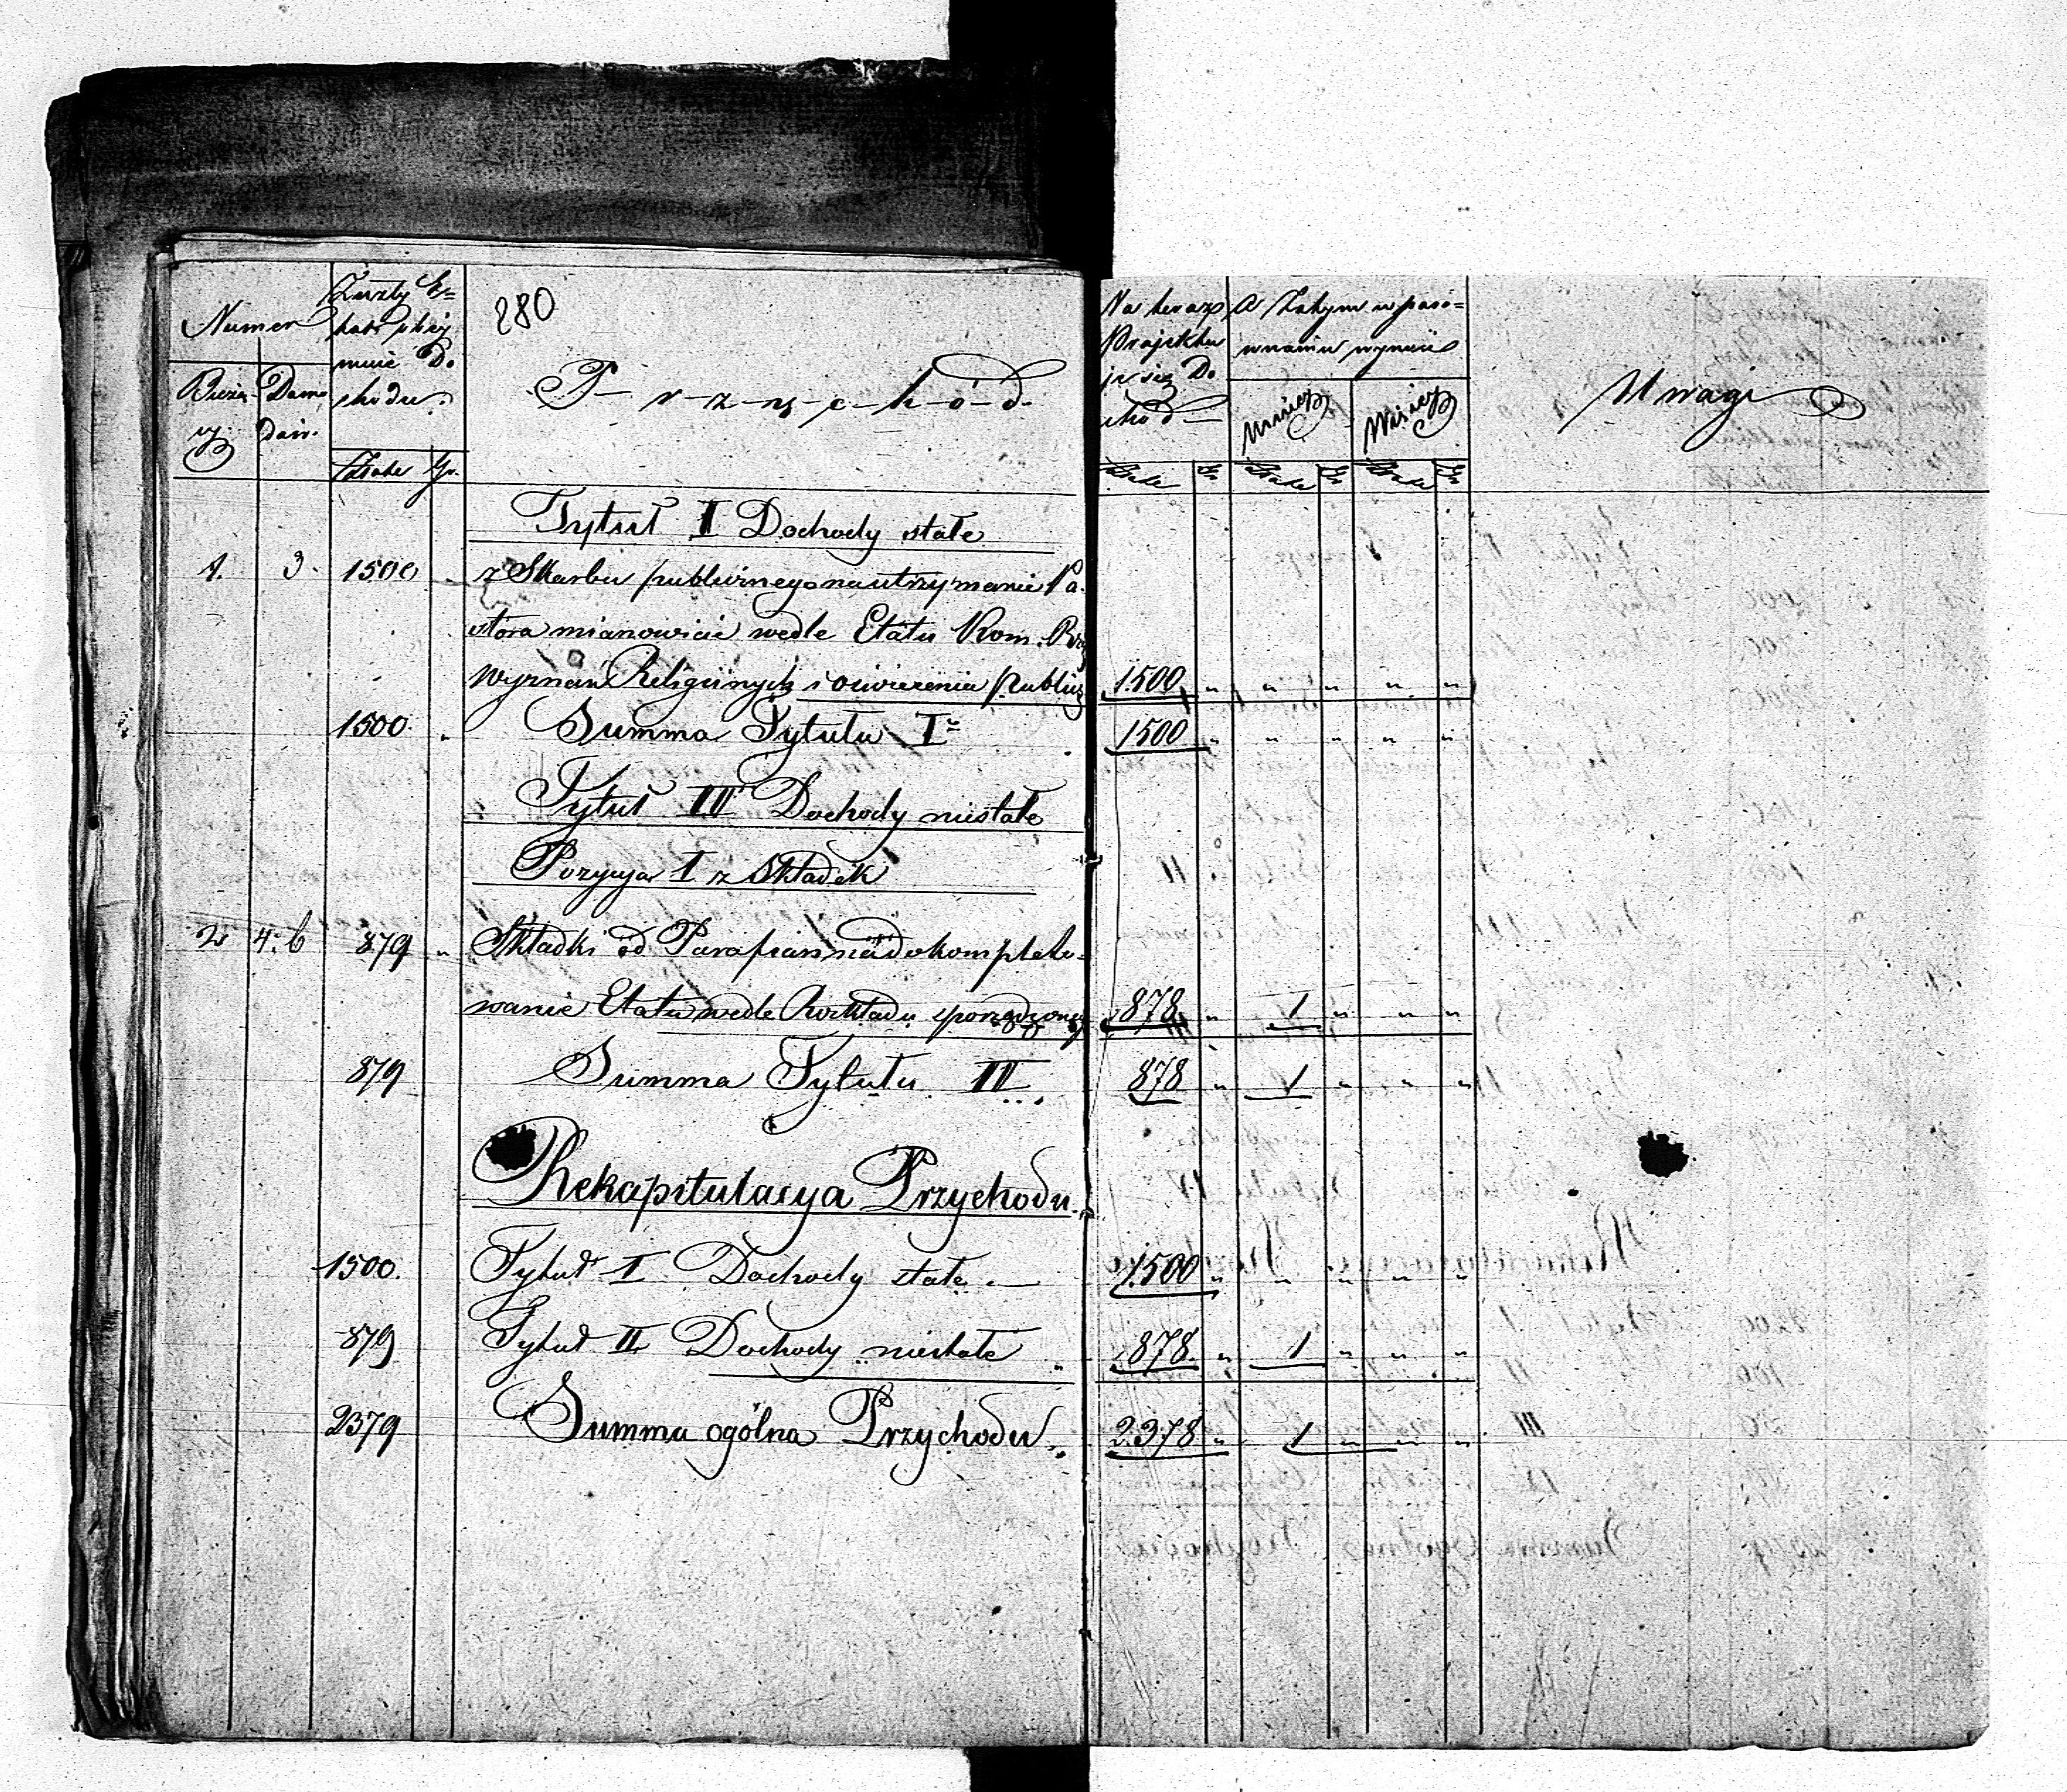 280
Numer
Bieżą- Dawn
cy daw.
Zeszły E=
tat obej
muie Do
chodu
Złote Gr.
P-r-z-y-c-h-ó-d
Na teraz
Projektu
je się Do
chód
A Zatym w poró=
wnaniu wynosi
Mniej Więcej
Złote Gr Złote Gr Złote Gr
Uwagi
Tytuł I Dochody stałe
1. 3. 1500 z Skarbu publicznego na utrzymanie Pa-
stora mianowicie wedle Etatu Kom. Rzą
Wyznań Religijnych i oświecenia Publicz 1500 " " " " "
1500 " Summa Tytułu I 1500 " " " " "
Tytuł II Dochody niestałe
Pozycya I z składek
2 4. b 879 " Składki od Parafian na dokompleto-
wanie Etatu wedle Rozkładu sporządzonego 878 " 1 " " "
879 Summa Tytułu II 878 " 1 " " "
Rekapitulacya Przychodu
1500. Tytuł I Dochody stałe 1500 " " " " "
879 Tytuł II Dochody niestałe " 878 " 1 " " "
2379 Summa ogólna Przychodu 2378 " 1 " " "